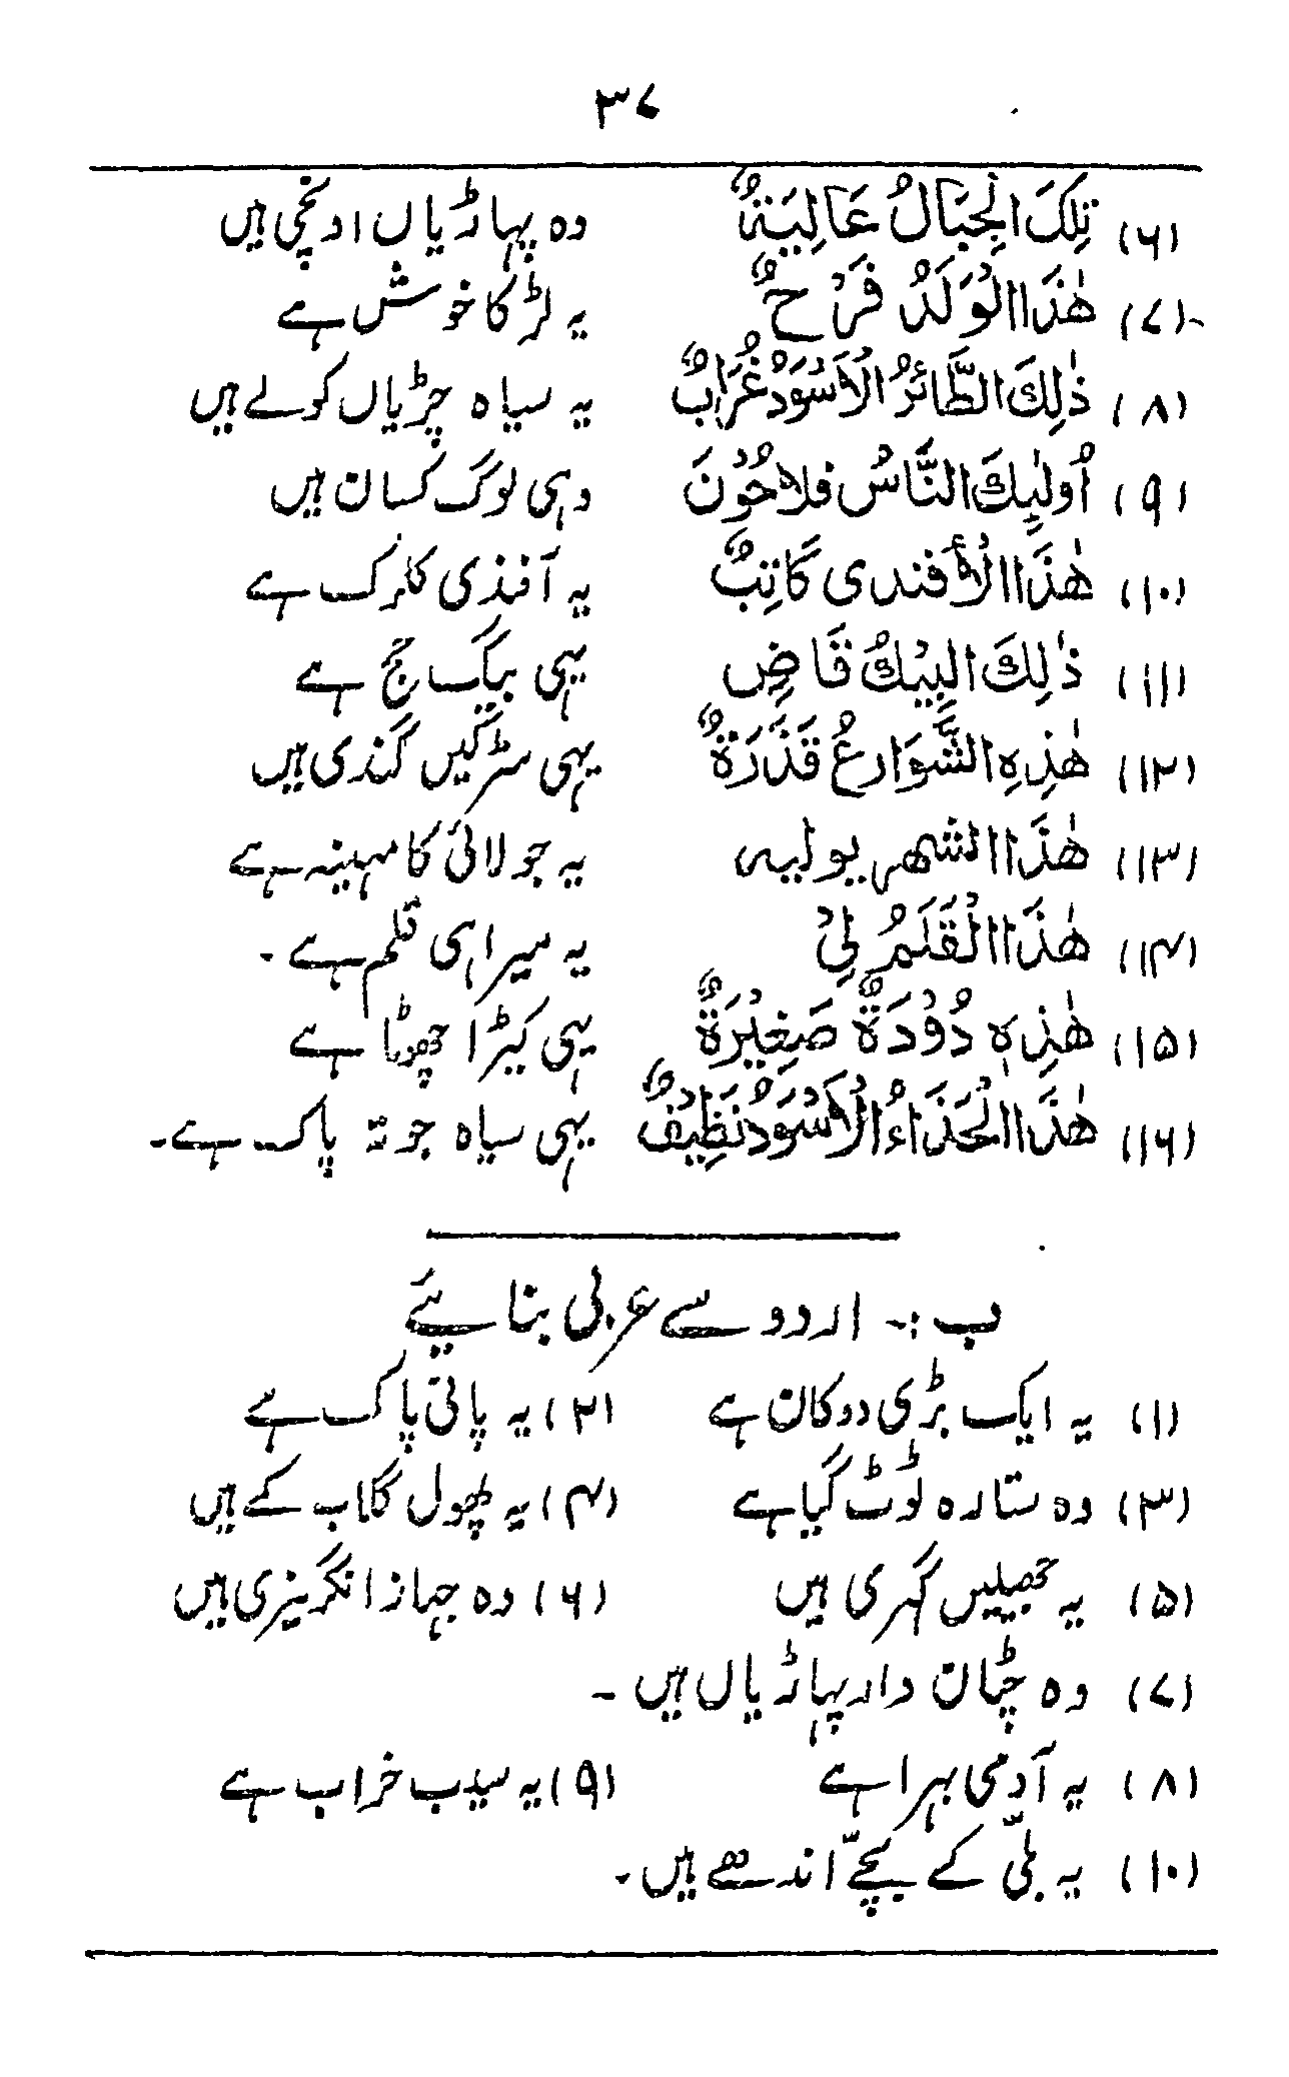 ۳۷
(۶) تِلْكَ الْجِبَالُ عَالِيَةٌ وہ پہاڑیاں اونچی ہیں
(۷) هٰذَا الْوَلَدُ فَرْحٌ یہ لڑکا خوش ہے
(۸) ذٰلِكَ الطَّائرُ الْأَسْوَدُ غُرَابٌ یہ سیاہ چڑیاں کولے ہیں
(۹) اُولٰٓئِكَ النَّاسُ فلاحُوْنَ وہی لوگ کسان ہیں
(۱۰) هٰذَا الْأفندی کَاتِبٌ یہ آفندی کلرک ہے
(۱۱) ذٰلِكَ الْبِيْكُ قَاضِ یہی بیگ جج ہے
(۱۲) هٰذِهِ الشَّوَارعُ قَذَرَةٌ یہی سڑکیں گندی ہیں
(۱۳) هٰذَا الشهر یولیہ یہ جولائی کا مہینہ ہے
(۱۴) هٰذَا الْقَلَمُ لِیْ یہ میرا ہی قلم ہے ۔
(۱۵) هٰذِہٖ دُوْدَةٌ صَغِيْرَةٌ یہی کیڑا چھوٹا ہے
(۱۶) هٰذَا الْحَذَاءُ الْأَسْوَدُ نَظِيْفٌ یہی سیاہ جوتہ پاک ہے۔
ب :۔ اردو سے عربی بنائیے
(۱) یہ ایک بڑی دوکان ہے (۲) یہ پانی پاک ہے
(۳) وہ ستارہ ٹوٹ گیا ہے (۴) یہ پھول گلاب کے ہیں
(۵) یہ جھیلیں گہری ہیں (۶) وہ جہاز انگریزی ہیں
(۷) وہ چٹان دار پہاڑیاں ہیں ۔
(۸) یہ آدمی بہرا ہے (۹) یہ سیب خراب ہے
(۱۰) یہ بلّی کے بچّے اندھے ہیں ۔